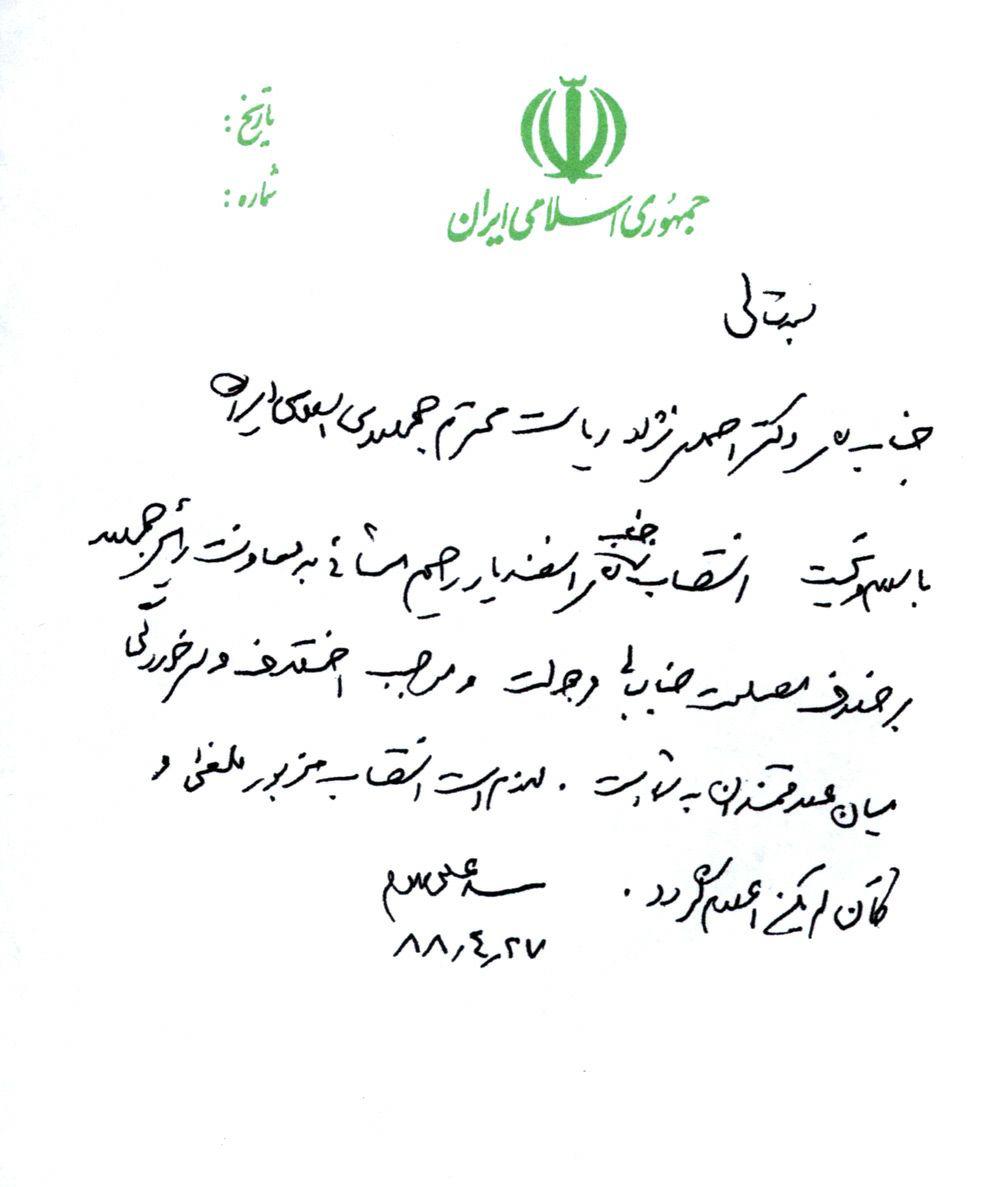 جمهوری اسلامی ایران
تاریخ :
شماره :
بسمه تعالی
جناب آقای دکتر احمدی نژاد ریاست محترم جمهوری اسلامی ایران
با سلام و تحیت انتصاب جناب آقای اسفندیار رحیم مشائی به معاونت رئیس جمهور
بر خلاف مصلحت جنابعالی و دولت و موجب اختلاف و سرخوردگی
میان علاقمندان به شماست . لازم است انتصاب مزبور ملغی و
کأن لم یکن اعلام گردد .
سید علی خامنه‌ای
۸۸٫۴٫۲۷